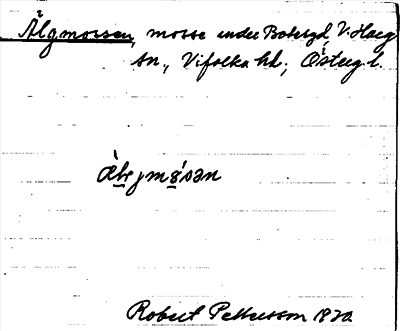 Älgmossen, mosse under Botsgd, V. Harg
sn., Vifolka hd; Österg. l.
Robert Pettersson 1920.